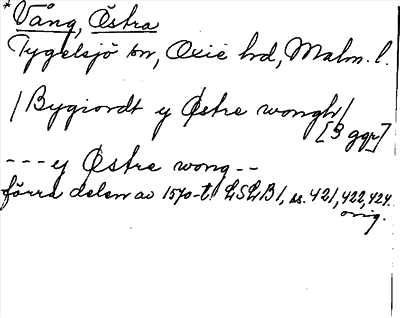 * Vång, Östra
Tygelsjö sn, Oxie hd, Malm. l.
/ Bygiordt y Østre wongh /
[3 ggr]
--- y Østre wong --
förra delen av 1570-t. LSLB 1, ss. 421, 422, 424.
orig.